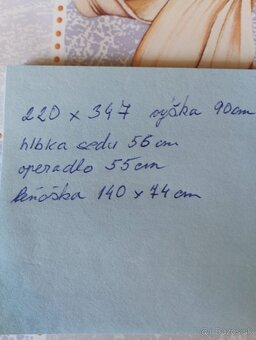 220 x 347 výška 90cm
hlbka sedu 56 cm
operadlo 55cm
leňóška 140 x 74 cm